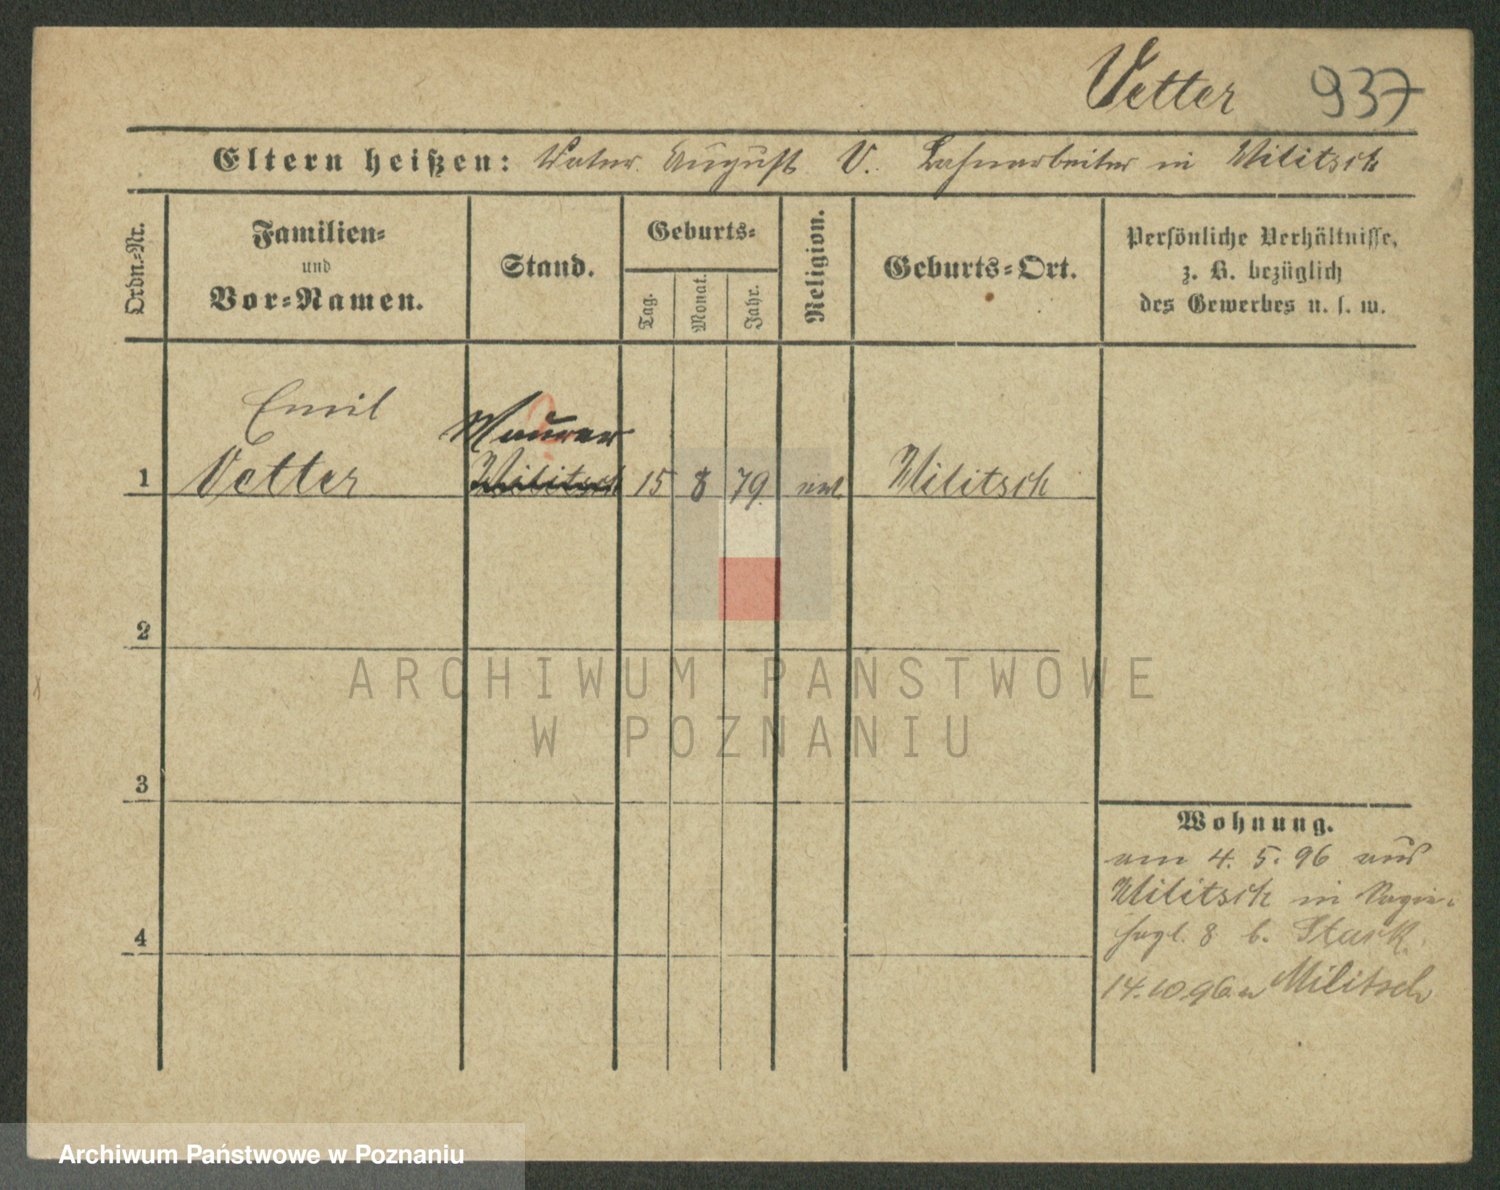 Vetter 937
Eltern heißen: Vater August V. Bahnarbeiter in Militsch
Ordn.-Nr.
Familien-
und
Vor-Namen.
Stand.
Geburts-
Tag.
Monat.
Jahr.
Religion.
Geburts-Ort.
Persönliche Verhältnisse,
z. B. bezüglich
des Gewerbes u. s. w.
Emil
Maurer
1 Vetter Militsch 15 8 79. ev Militsch
2
3
4
Wohnung.
am 4. 5. 96 aus
Militsch in
8 b. Stark.
14.10.96 n Militsch
ARCHIWUM PAŃSTWOWE
W POZNANIU
Archiwum Państwowe w Poznaniu